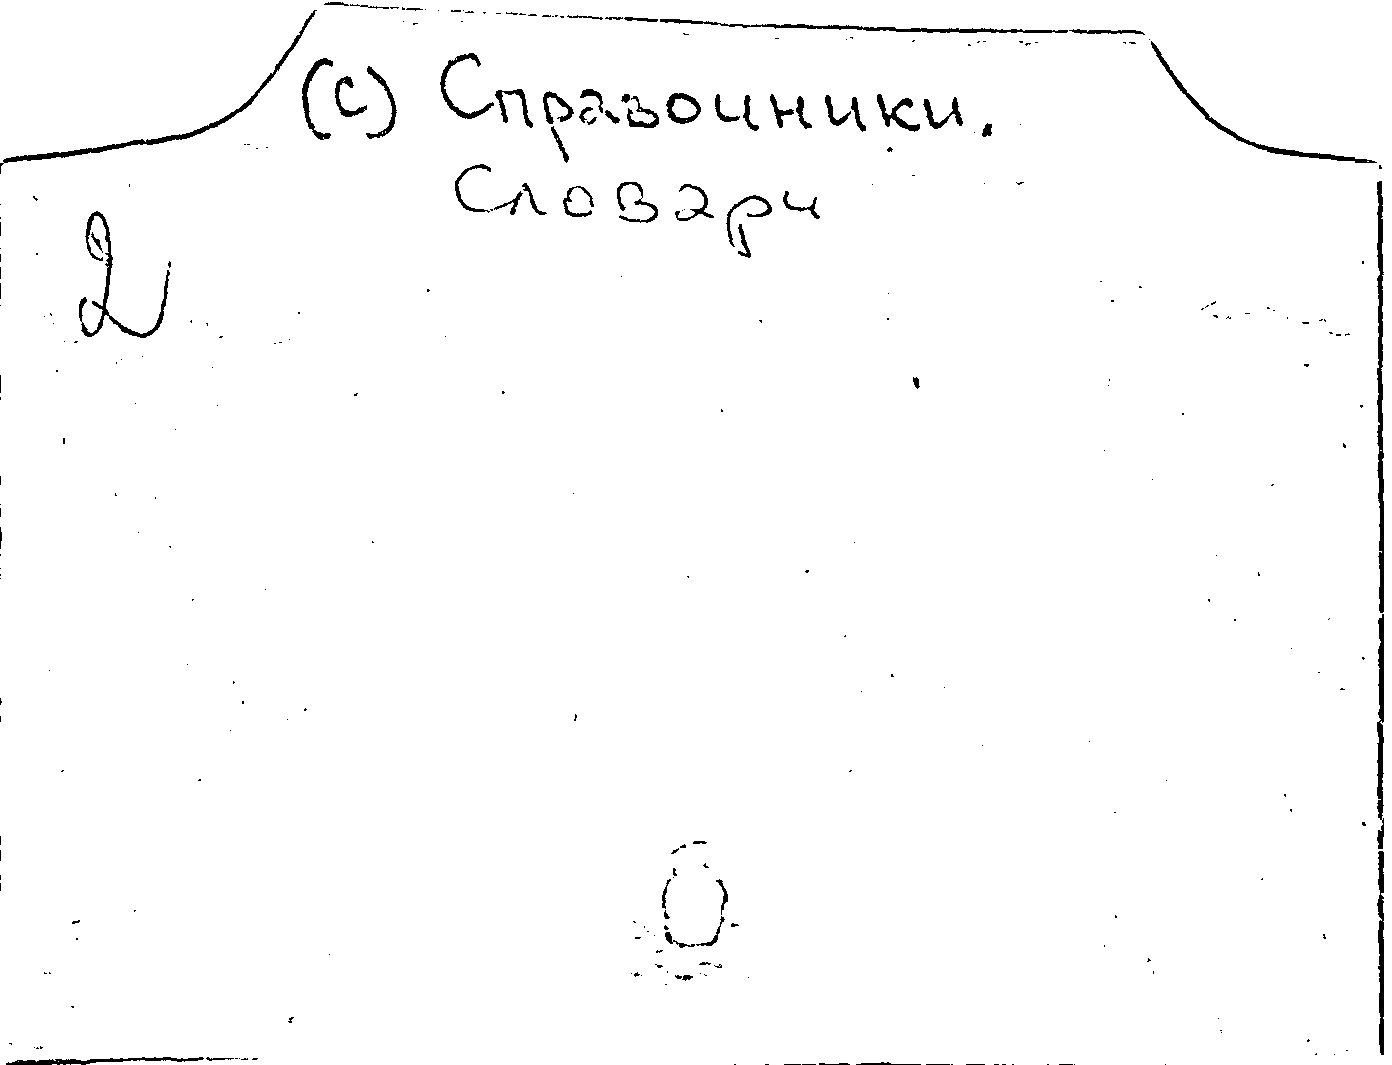 (С) Справочники.
Словари
2